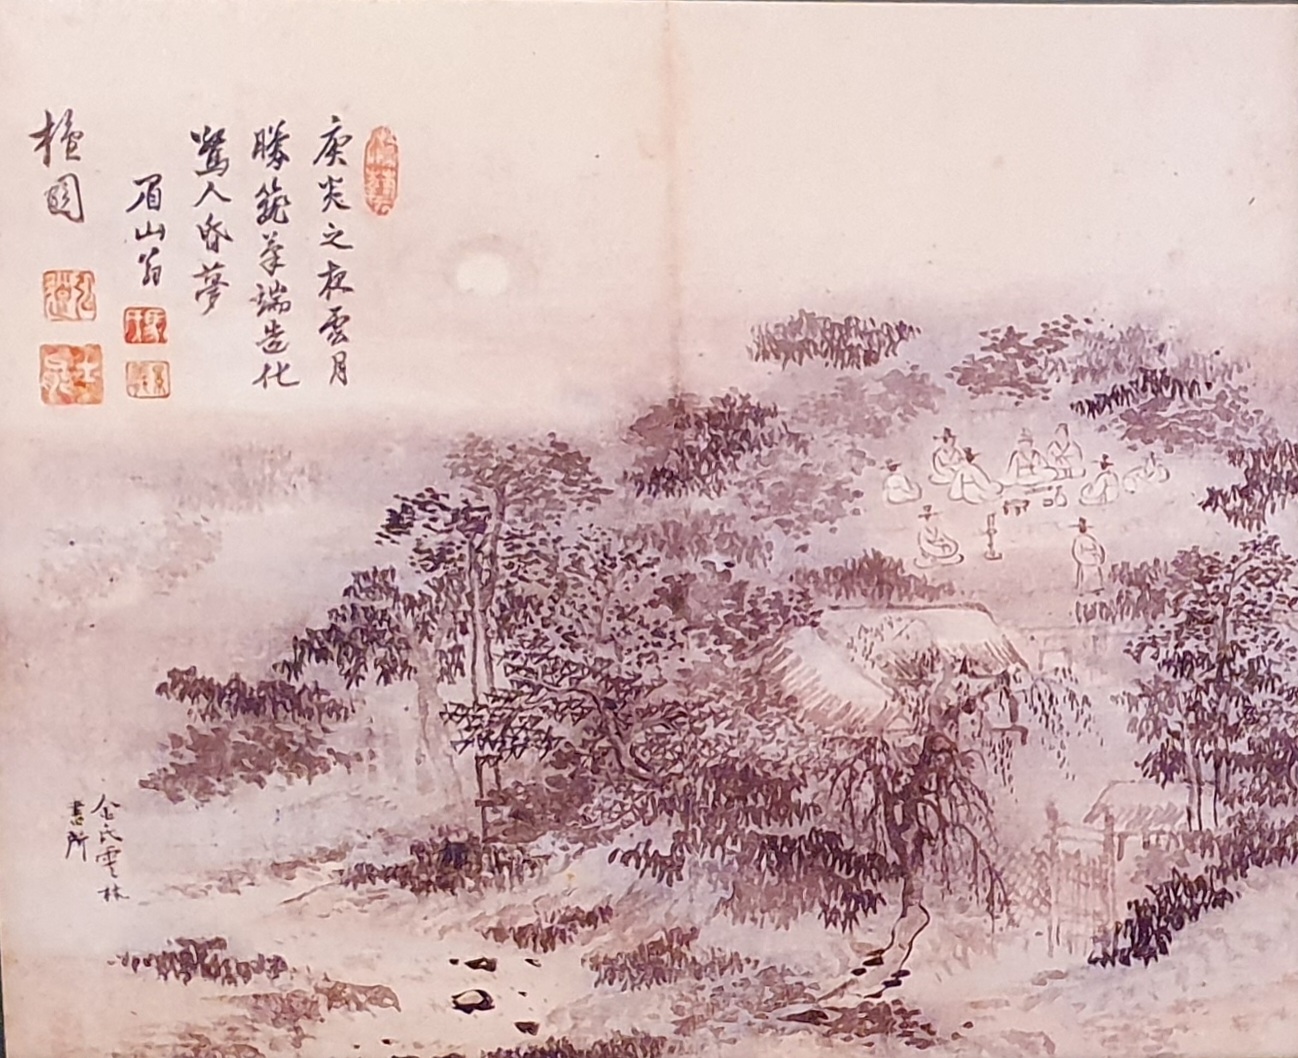 庚炎之夜雲月
朦朧筆端造化
驚人昏夢
眉山翁
檀園
弘道
士能
金氏雲林
書所